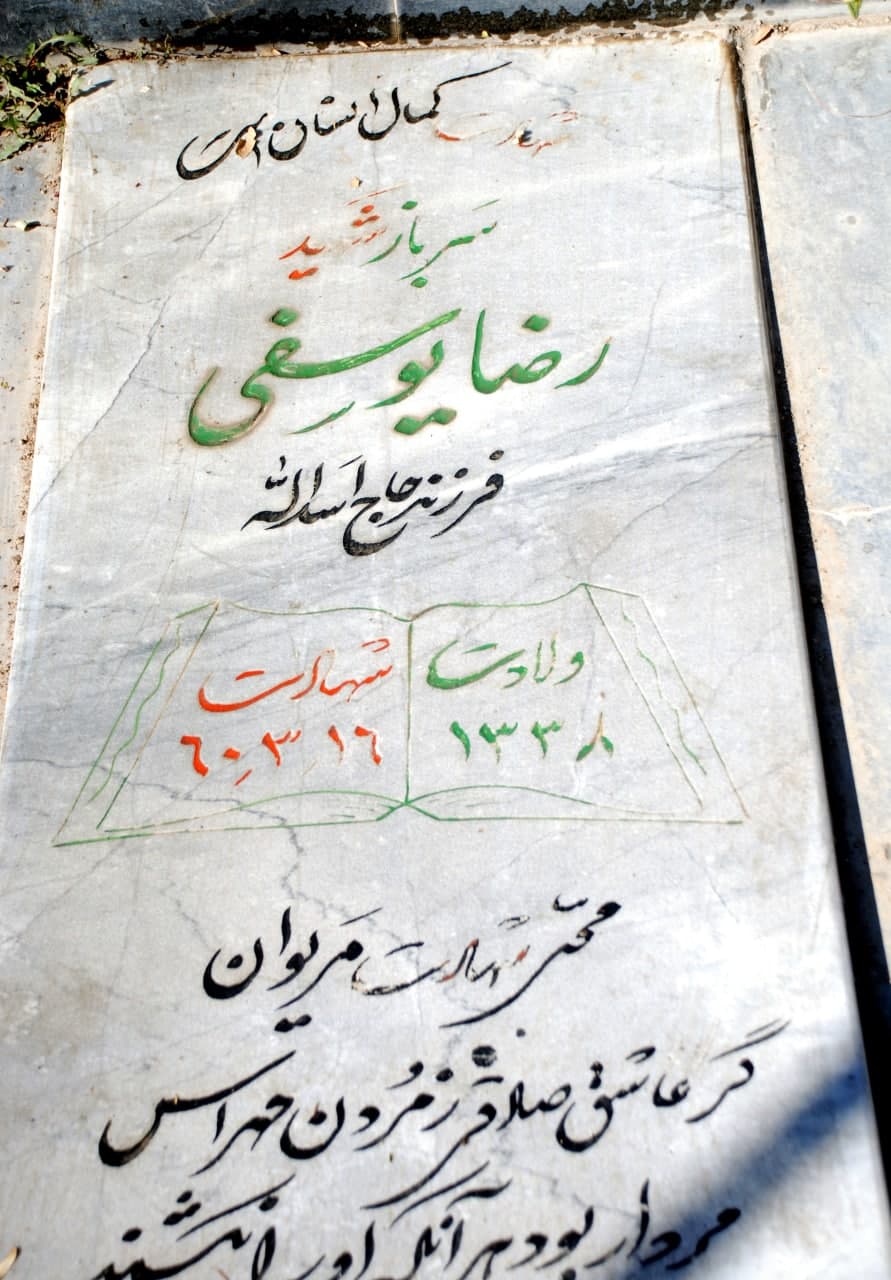 شهادت کمال انسان است
سرباز شهید
رضا یوسفی
فرزند حاج اسدالله
ولادت
۱۳۳۸
شهادت
٦٠٫۳٫۱٦
محل شهادت مریوان
گر عاشق صادقی ز مردن مهراس
مردار بود هر آنکه او را نکشند